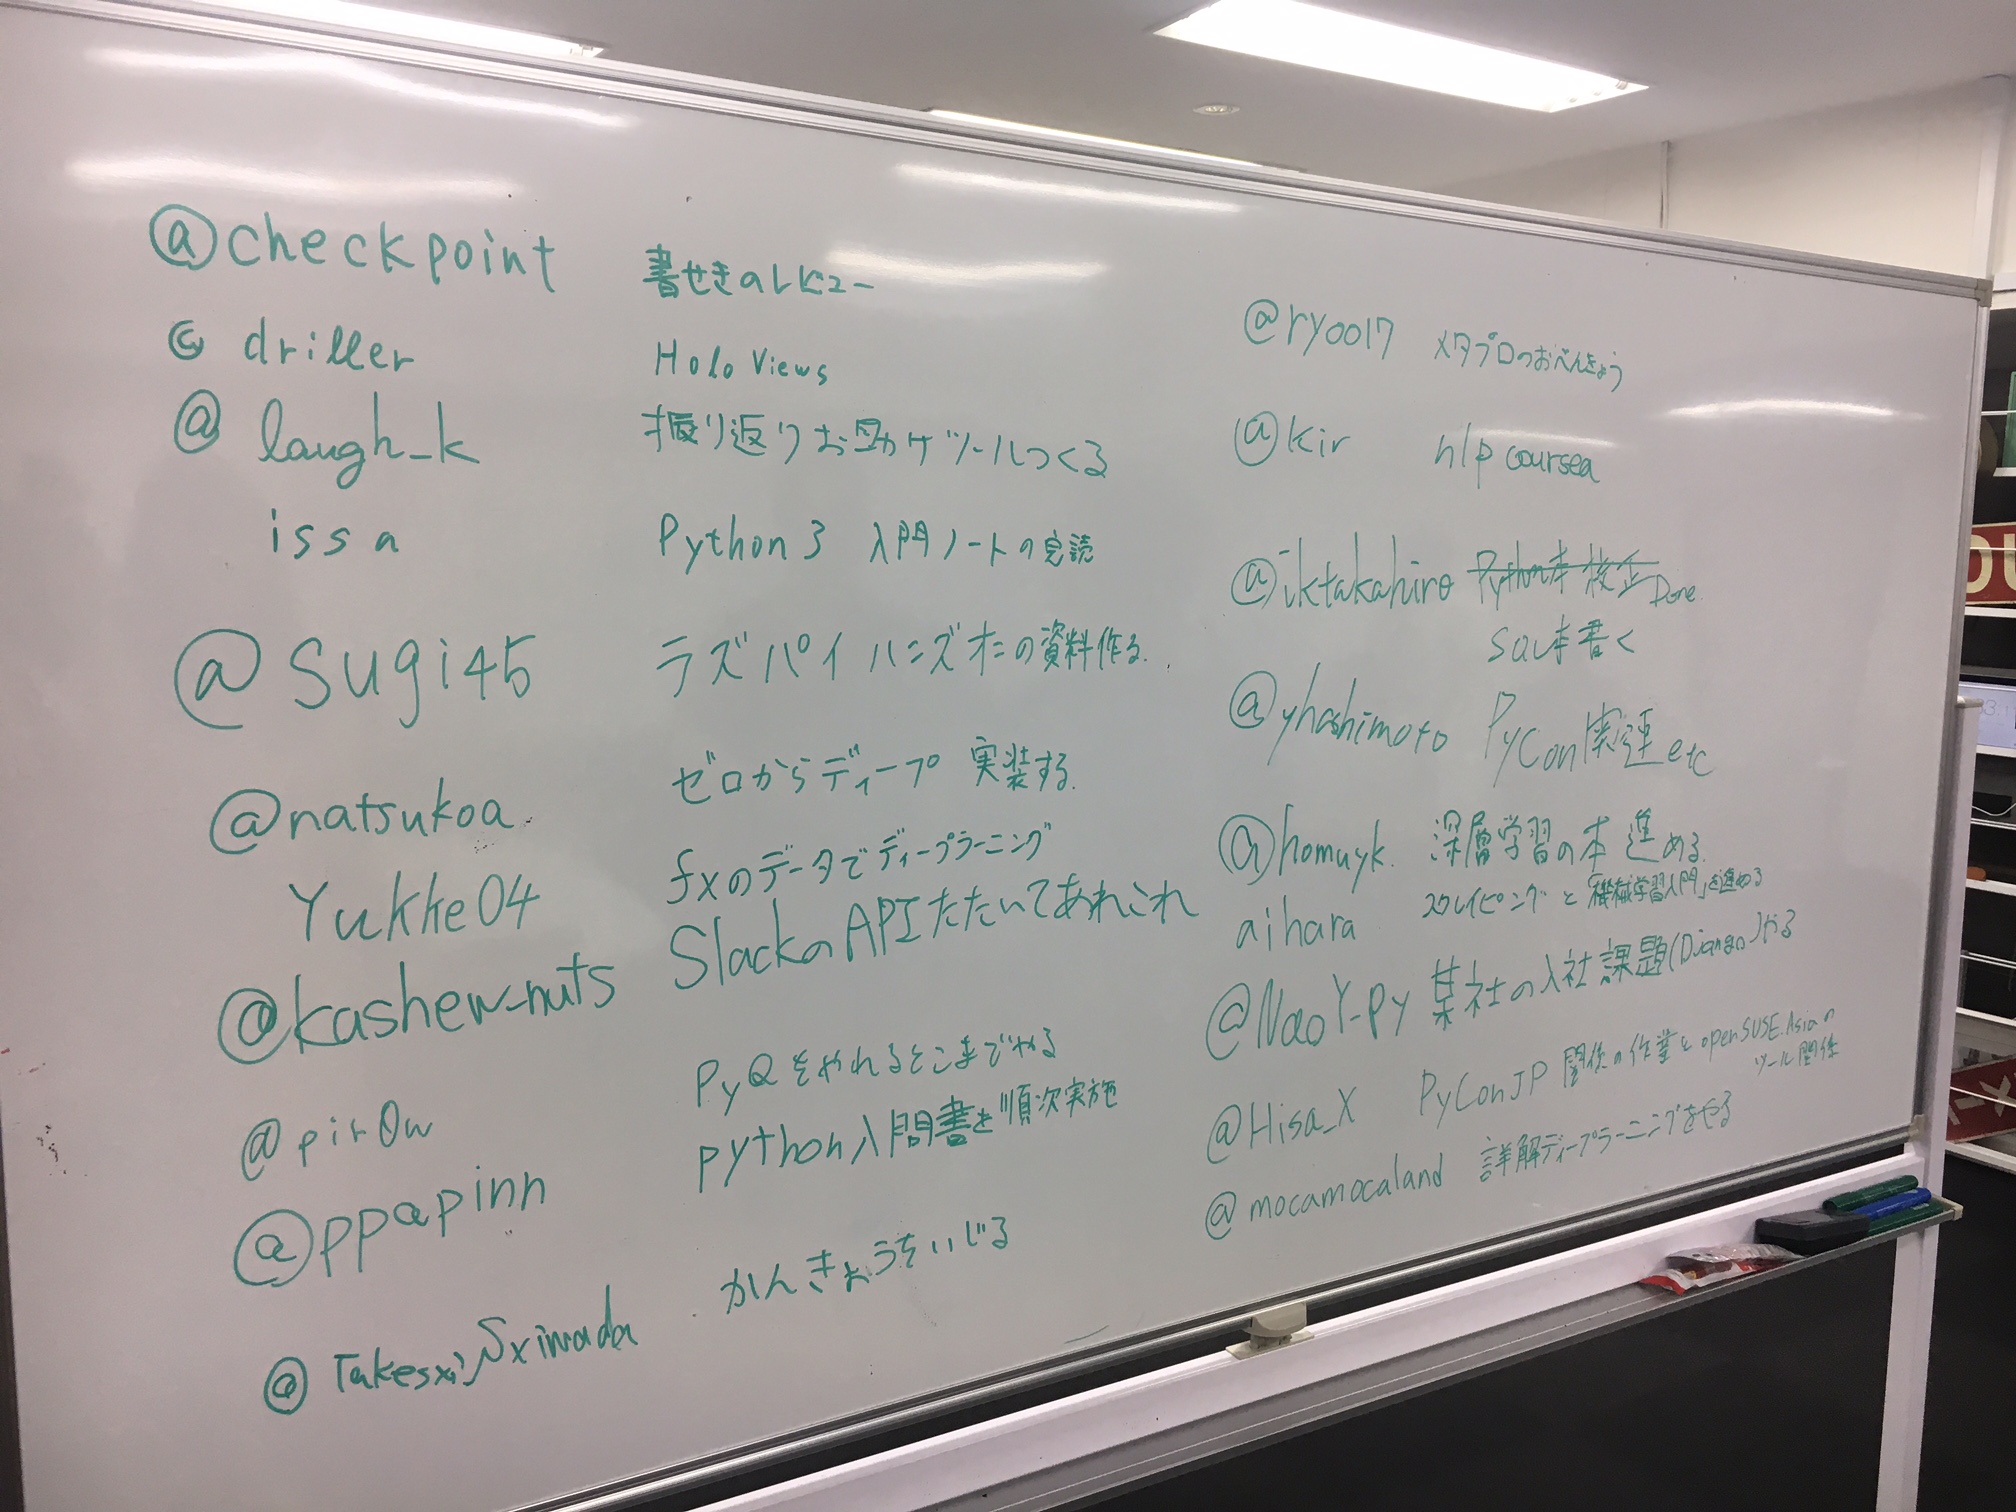 @checkpoint 書せきのレビュー
@driller HoloViews
@laugh_k 振り返りお助けツールつくる
issa Python3 入門ノートの完読
@sugi45 ラズパイハンズオンの資料作る.
@natsukoa ゼロからディープ 実装する.
Yukke04 fxのデータでディープラーニング
@kashew_nuts SlackのAPIたたいてあれこれ
@pir0w PyQをやれるとこまでやる
@ppapinn python入門書を順次実施
@TakesxiSximada かんきょうをいじる
@ryo017 メタプロのおべんきょう
@kir nlp coursea
@iktakahiro Python本 校正 Done.
本書く
@yhashimoto PyCon関連 etc
@homuyk. 深層学習の本 進める.
aihara スクレイピングと「機械学習入門」を進める
@NaoY_py 某社の入社課題(Django)やる
@Hisa_X PyConJP 関係の作業と openSUSE.Asiaの
ツール関係
@mocamocaland 詳解ディープラーニングをやる